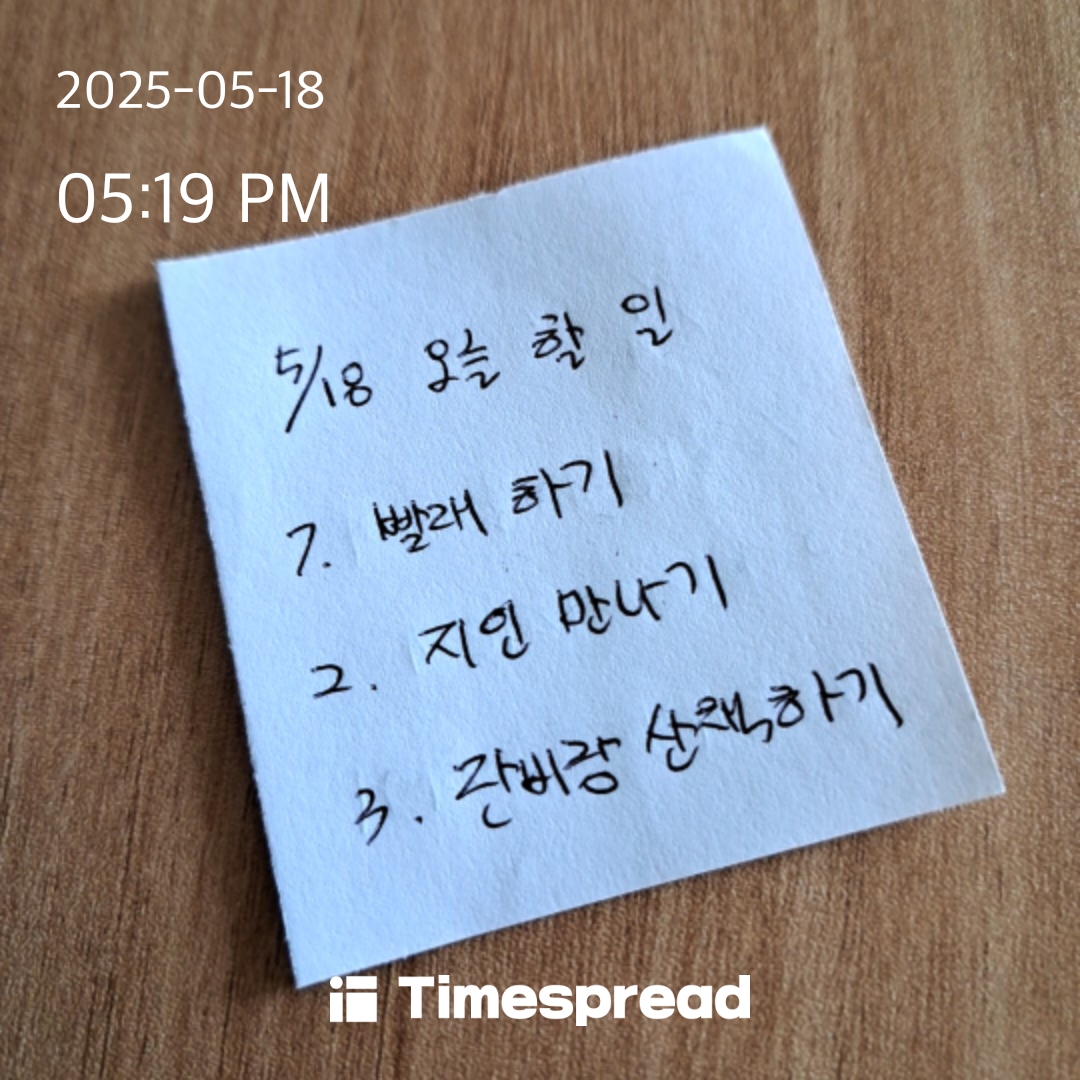 2025-05-18
05:19 PM
5/18 오늘 할 일
1. 빨래 하기
2. 지인 만나기
3. 단비랑 산책하기
Timespread